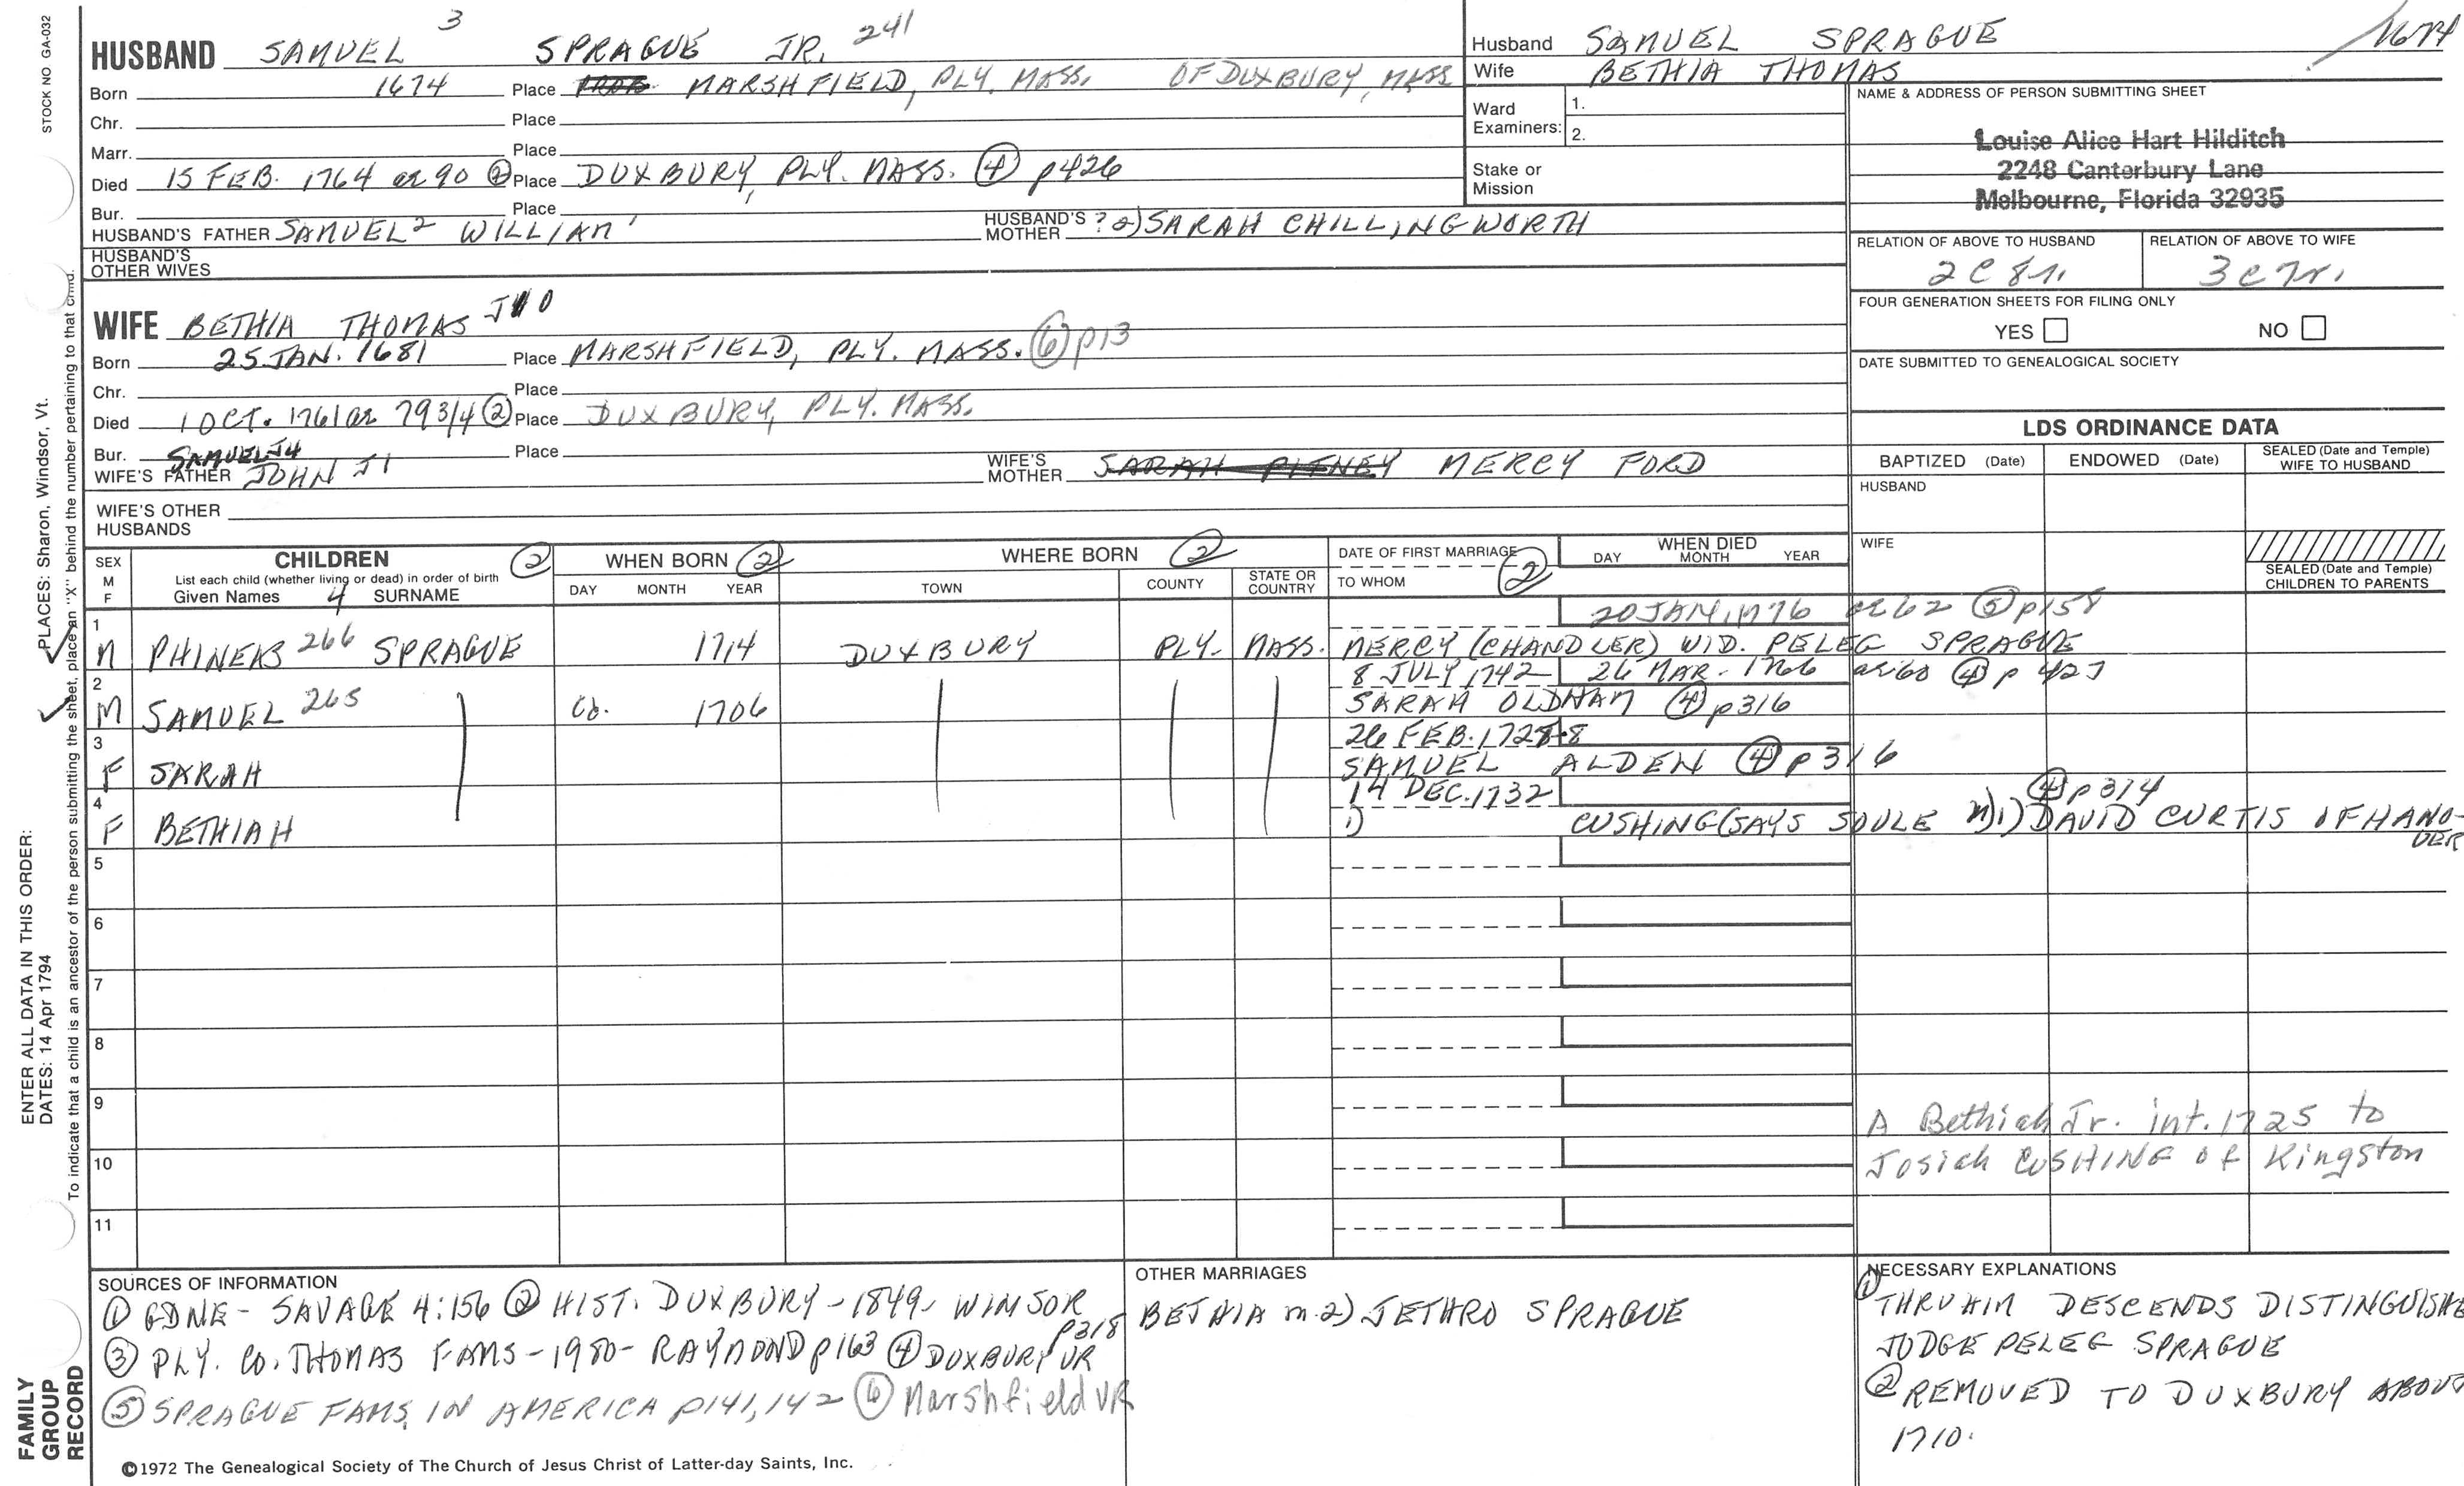 STOCK NO GA-032
HUSBAND SAMUEL 3 SPRAGUE JR. 241
Born 1674 Place MARSHFIELD, PLY. MASS. OF DUXBURY, MASS
Chr. Place
Marr. Place
Died 15 FEB. 1764 ae 90 ② Place DUXBURY, PLY. MASS. ④ p426
Bur. Place
HUSBAND'S FATHER SAMUEL 2 WILLIAM 1 HUSBAND'S MOTHER ? 2) SARAH CHILLINGWORTH
HUSBAND'S OTHER WIVES
Husband SAMUEL SPRAGUE 1674
Wife BETHIA THOMAS
Ward Examiners: 1.
2.
Stake or Mission
NAME & ADDRESS OF PERSON SUBMITTING SHEET
Louise Alice Hart Hilditch
2248 Canterbury Lane
Melbourne, Florida 32935
RELATION OF ABOVE TO HUSBAND RELATION OF ABOVE TO WIFE
2 C 8 r. 3 C 7 r.
FOUR GENERATION SHEETS FOR FILING ONLY
YES NO
DATE SUBMITTED TO GENEALOGICAL SOCIETY
WIFE BETHIA THOMAS
Born 25 JAN. 1681 Place MARSHFIELD, PLY. MASS. ⑥ p13
Chr. Place
Died 1 OCT. 1761 ae 79 3/4 ② Place DUXBURY, PLY. MASS.
Bur. Place
WIFE'S FATHER SAMUEL J4 JOHN J1 WIFE'S MOTHER SARAH PITNEY MERCY FORD
WIFE'S OTHER HUSBANDS
LDS ORDINANCE DATA
BAPTIZED (Date) ENDOWED (Date) SEALED (Date and Temple) WIFE TO HUSBAND
HUSBAND
WIFE
SEALED (Date and Temple) CHILDREN TO PARENTS
SEX M F CHILDREN ② WHEN BORN ② WHERE BORN ② DATE OF FIRST MARRIAGE ② WHEN DIED
List each child (whether living or dead) in order of birth
Given Names 4 SURNAME DAY MONTH YEAR TOWN COUNTY STATE OR COUNTRY TO WHOM DAY MONTH YEAR
1 20 JAN. 1776 ae 62 ⑤ p158
M PHINEAS 266 SPRAGUE 1714 DUXBURY PLY. MASS. MERCY (CHANDLER) WID. PELEG SPRAGUE
2 8 JULY 1742 26 MAR. 1766 ae 60 ④ p 427
M SAMUEL 265 Cb. 1706 SARAH OLDHAM ④ p316
3 26 FEB. 1727-8
F SARAH SAMUEL ALDEN ④ p316
4 14 DEC. 1732 ④ p314
F BETHIAH 1) CUSHING (SAYS SOULE m) 1) DAVID CURTIS OF HANOVER
5
6
7
8
9
10
11
A Bethiah Jr. int. 1725 to
Josiah CUSHING of Kingston
SOURCES OF INFORMATION
① GDNE - SAVAGE 4:156 ② HIST. DUXBURY - 1849 - WINSOR p318
③ PLY. CO. THOMAS FAMS - 1980 - RAYMOND p163 ④ DUXBURY VR
⑤ SPRAGUE FAMS, IN AMERICA p141, 142 ⑥ Marshfield VR
©1972 The Genealogical Society of The Church of Jesus Christ of Latter-day Saints, Inc.
OTHER MARRIAGES
BETHIA m. 2) JETHRO SPRAGUE
NECESSARY EXPLANATIONS
① THRU HIM DESCENDS DISTINGUISHE
JUDGE PELEG SPRAGUE
② REMOVED TO DUXBURY ABOU
1710.
ENTER ALL DATA IN THIS ORDER:
DATES: 14 Apr 1794 PLACES: Sharon, Windsor, Vt.
To indicate that a child is an ancestor of the person submitting the sheet, place an "X" behind the number pertaining to that child.
FAMILY
GROUP
RECORD